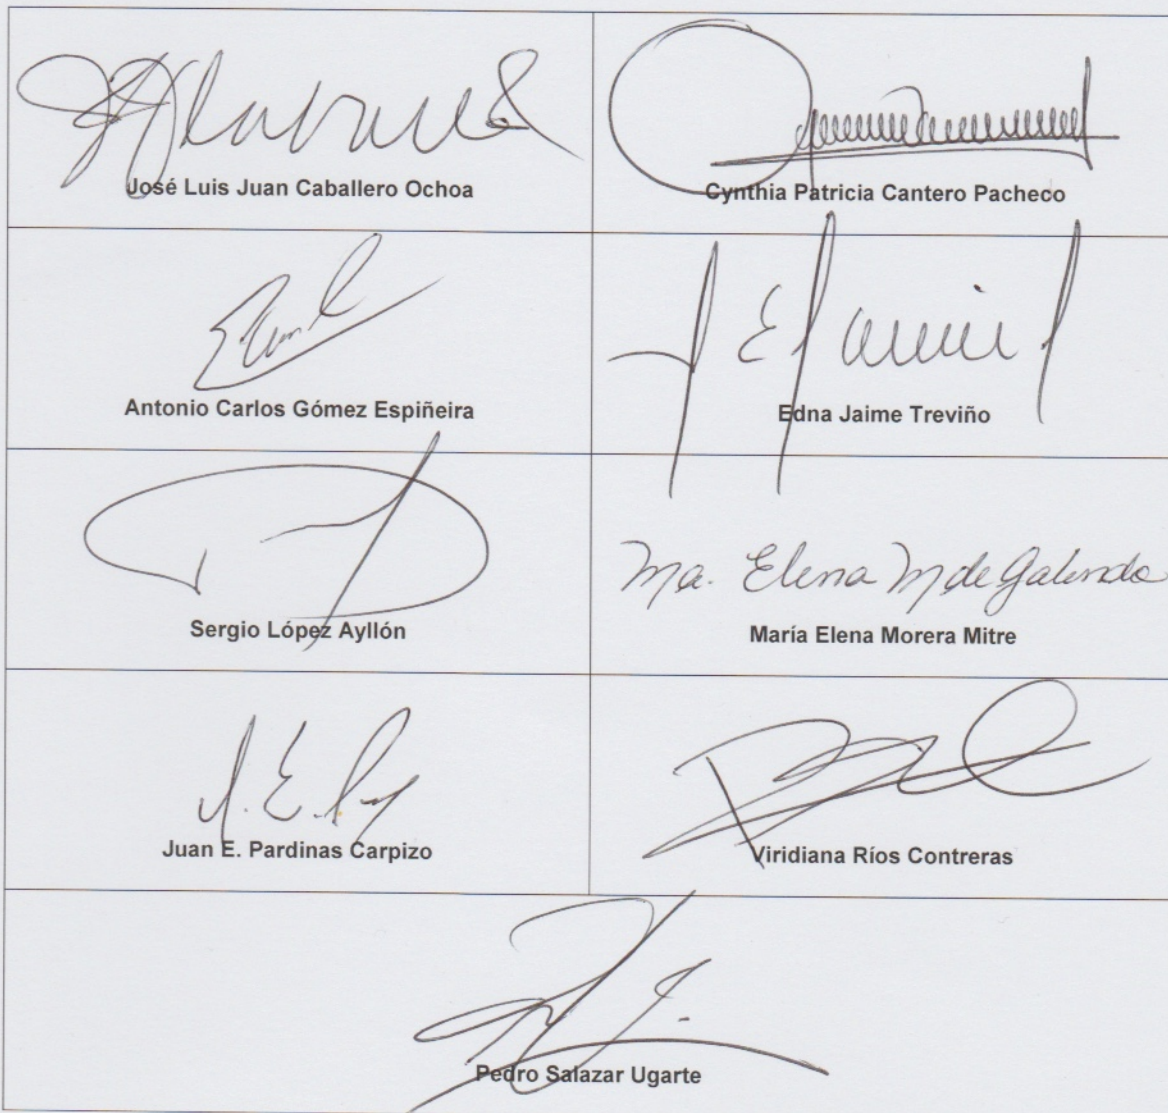 José Luis Juan Caballero Ochoa
Cynthia Patricia Cantero Pacheco
Antonio Carlos Gómez Espiñeira
Edna Jaime Treviño
Sergio López Ayllón
Ma. Elena M de Galindo
María Elena Morera Mitre
J. E. 
Juan E. Pardinas Carpizo
Viridiana Ríos Contreras
Pedro Salazar Ugarte